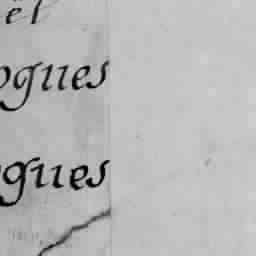 el
ogues
gues